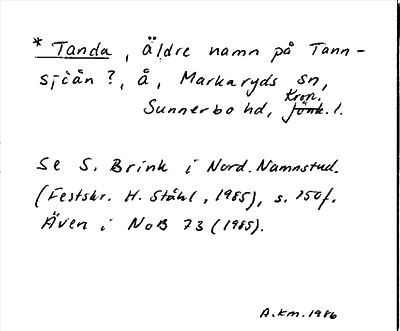 * Tanda, äldre namn på Tann-
sjöån?, å, Markaryds sn,
Sunnerbo hd, Jönk. Kron. l.
Se S. Brink i Nord. Namnstud.
(Festskr. H. Ståhl, 1985), s. 250f.
Även i NoB 73 (1985).
A.km. 1986